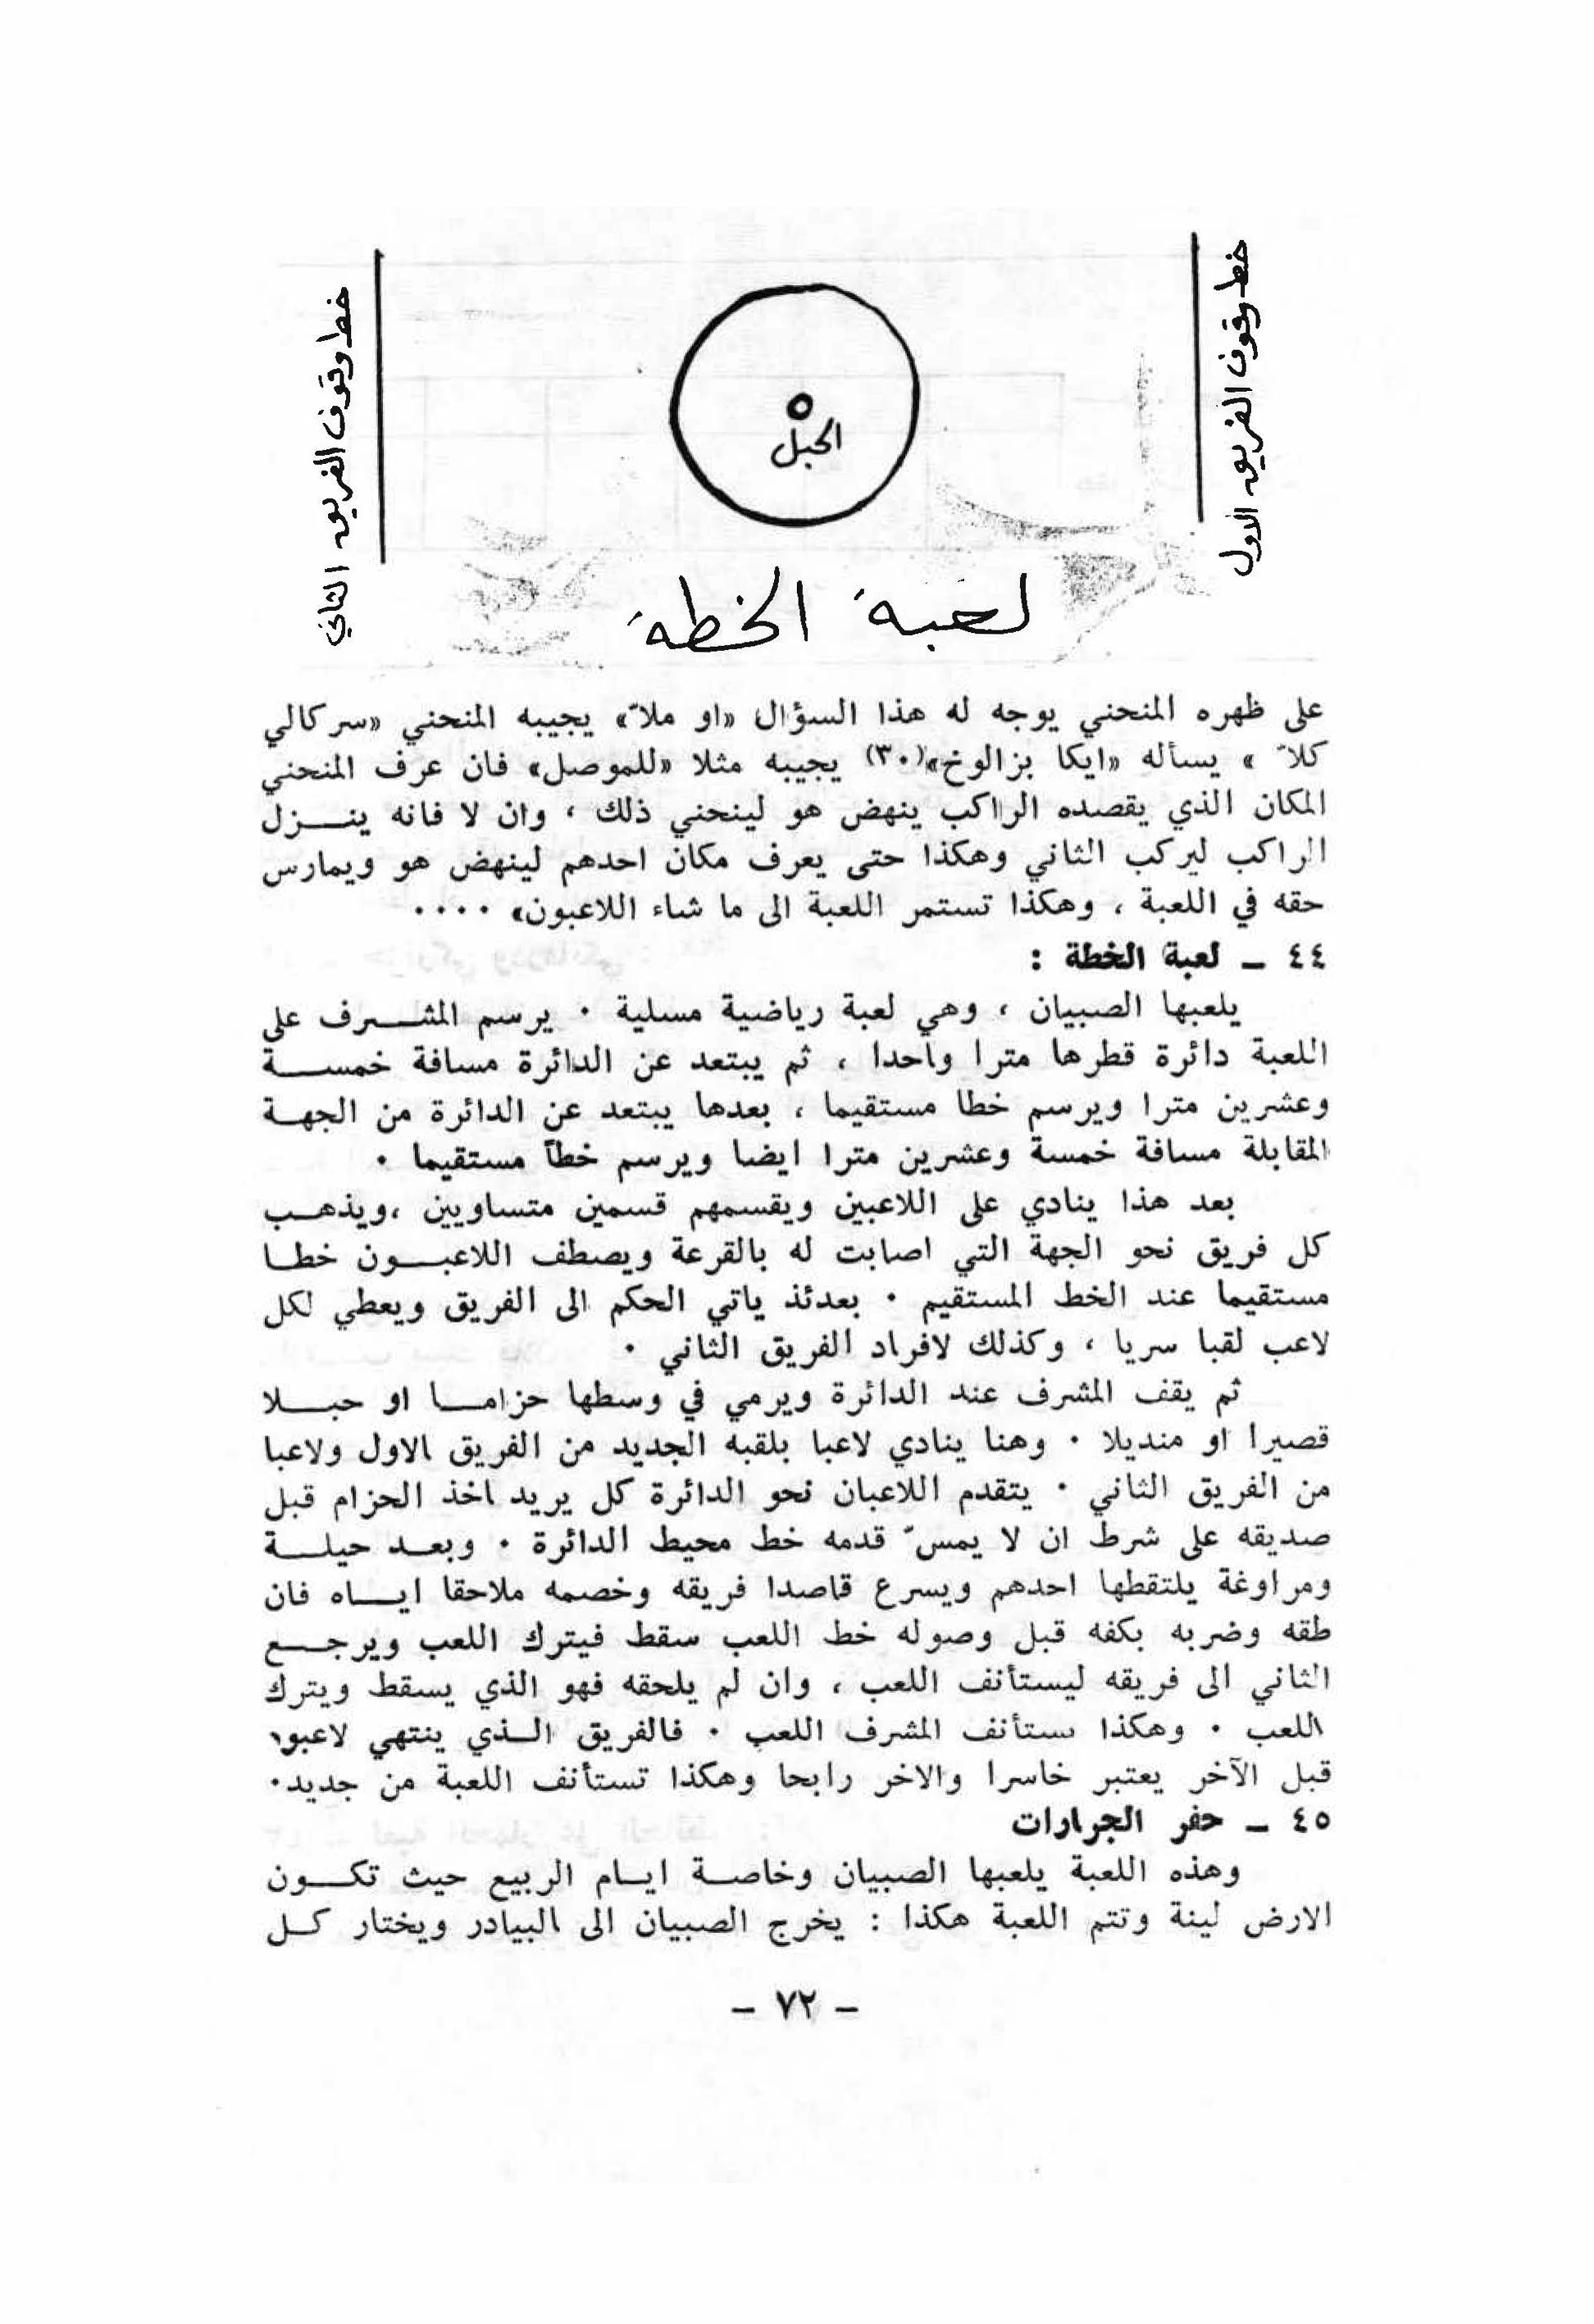 خط وقوف الفريق الاول
خط وقوف الفريق الثاني
الحبل
لعبة الخطة
على ظهره المنحني يوجه له هذا السؤال «او ملاّ» يجيبه المنحني «سركالي
كلاّ » يسأله «ايكا بزالوخ»(٣٠) يجيبه مثلا «للموصل» فان عرف المنحني
المكان الذي يقصده الراكب ينهض هو لينحني ذلك ، وان لا فانه ينـزل
الراكب ليركب الثاني وهكذا حتى يعرف مكان احدهم لينهض هو ويمارس
حقه في اللعبة ، وهكذا تستمر اللعبة الى ما شاء اللاعبون» ٠٠٠٠
٤٤ ـ لعبة الخطة :
يلعبها الصبيان ، وهي لعبة رياضية مسلية ٠ يرسم المشـرف على
اللعبة دائرة قطرها مترا واحدا ، ثم يبتعد عن الدائرة مسافة خمسـة
وعشرين مترا ويرسم خطا مستقيما ، بعدها يبتعد عن الدائرة من الجهـة
المقابلة مسافة خمسة وعشرين مترا ايضا ويرسم خطاً مستقيما ٠
بعد هذا ينادي على اللاعبين ويقسمهم قسمين متساويين ،ويذهـب
كل فريق نحو الجهة التي اصابت له بالقرعة ويصطف اللاعبـون خطـا
مستقيما عند الخط المستقيم ٠ بعدئذ ياتي الحكم الى الفريق ويعطي لكل
لاعب لقبا سريا ، وكذلك لافراد الفريق الثاني ٠
ثم يقف المشرف عند الدائرة ويرمي في وسطها حزامـا او حبـلا
قصيرا او منديلا ٠ وهنا ينادي لاعبا بلقبه الجديد من الفريق الاول ولاعبا
من الفريق الثاني ٠ يتقدم اللاعبان نحو الدائرة كل يريد اخذ الحزام قبل
صديقه على شرط ان لا يمسّ قدمه خط محيط الدائرة ٠ وبعـد حيلـة
ومراوغة يلتقطها احدهم ويسرع قاصدا فريقه وخصمه ملاحقا ايـاه فان
طقه وضربه بكفه قبل وصوله خط اللعب سقط فيترك اللعب ويرجـع
الثاني الى فريقه ليستأنف اللعب ، وان لم يلحقه فهو الذي يسقط ويترك
اللعب ٠ وهكذا يستأنف المشرف اللعب ٠ فالفريق الـذي ينتهي لاعبوا
قبل الآخر يعتبر خاسرا والاخر رابحا وهكذا تستأنف اللعبة من جديد٠
٤٥ ـ حفر الجرارات
وهذه اللعبة يلعبها الصبيان وخاصـة ايـام الربيع حيث تكـون
الارض لينة وتتم اللعبة هكذا : يخرج الصبيان الى البيادر ويختار كـل
ـ ٧٢ ـ